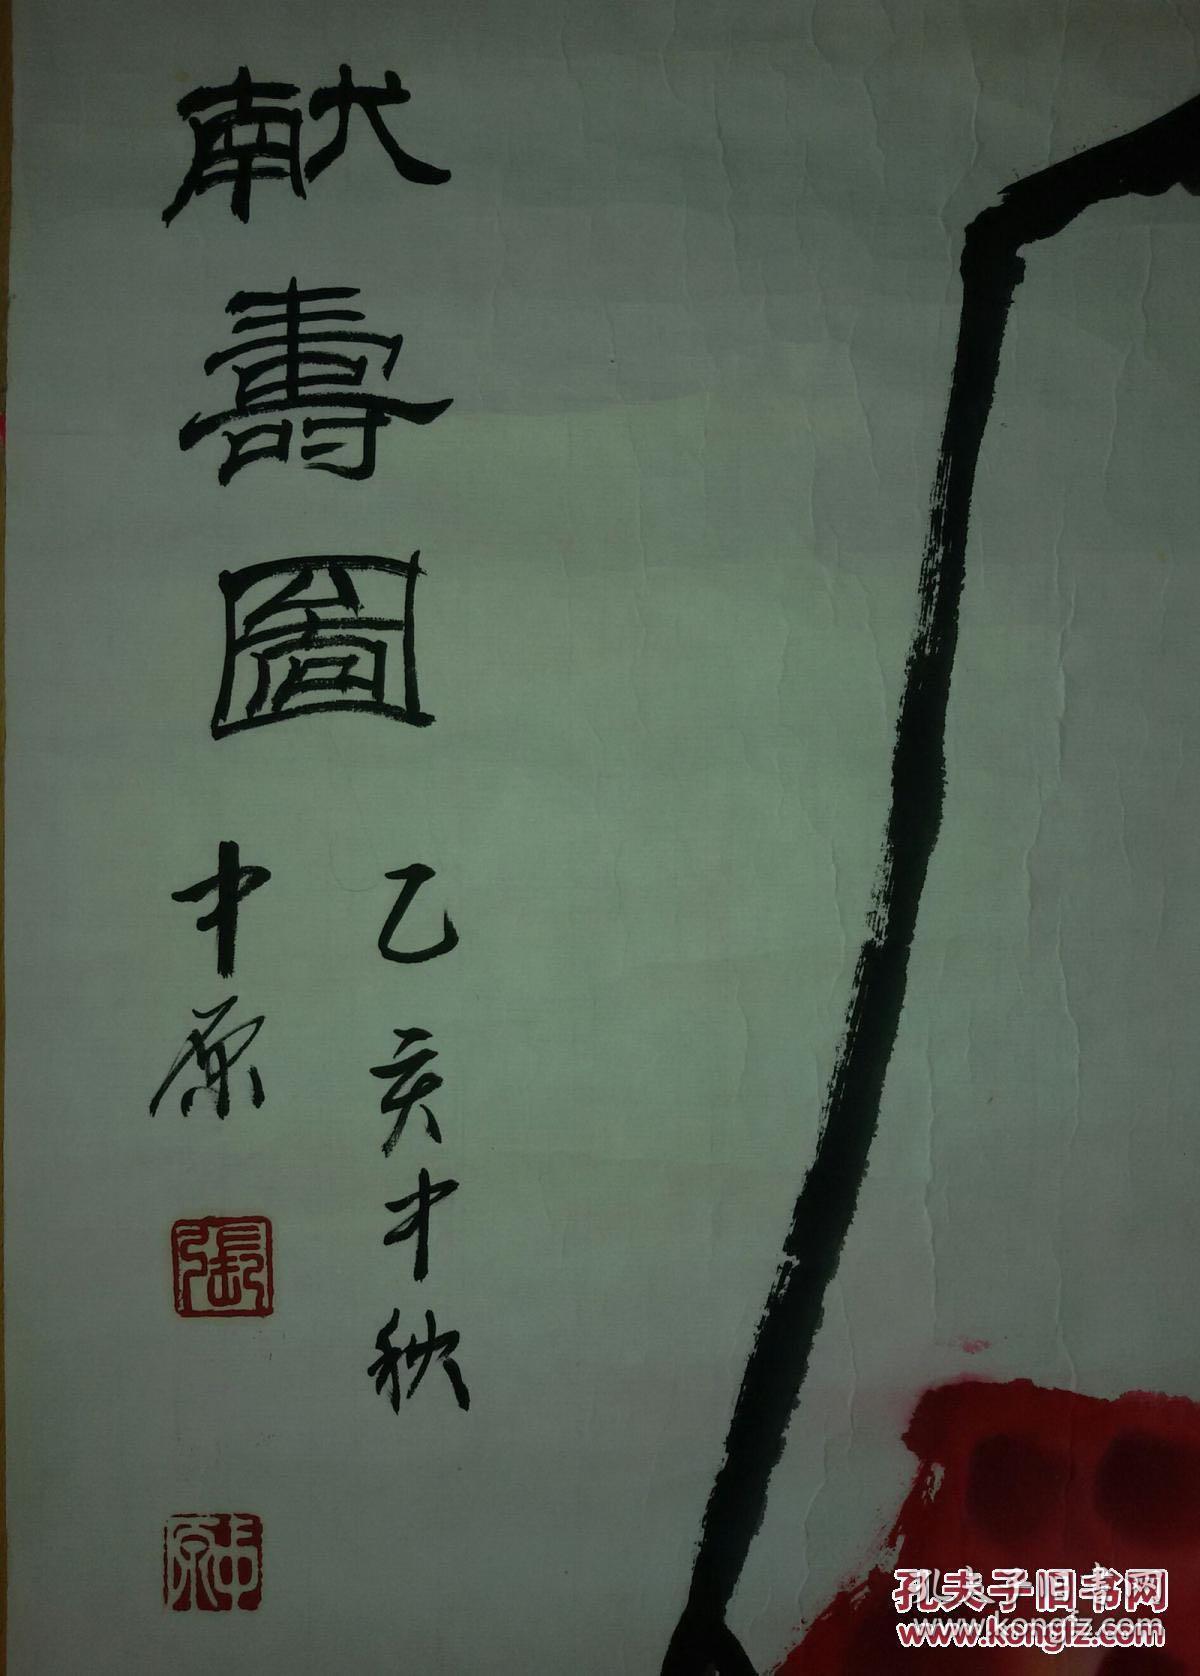 献壽圖
乙亥中秋
中原
張
中原
孔夫子旧书网
www.kongfz.com